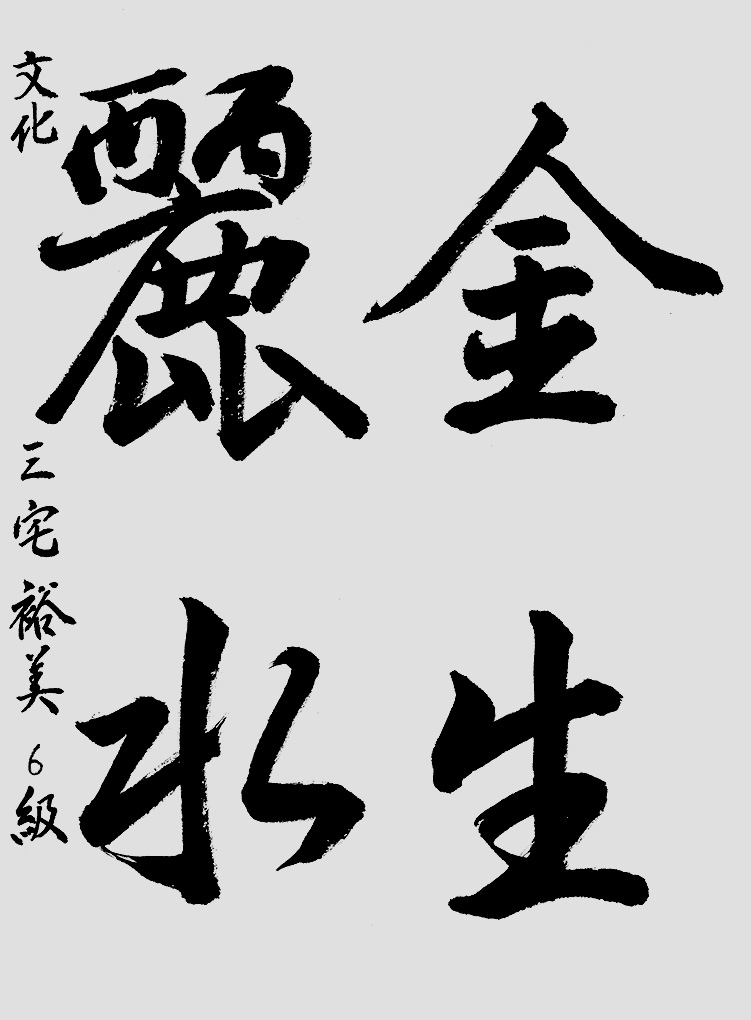 金生
麗水
文化 三宅裕美 6級